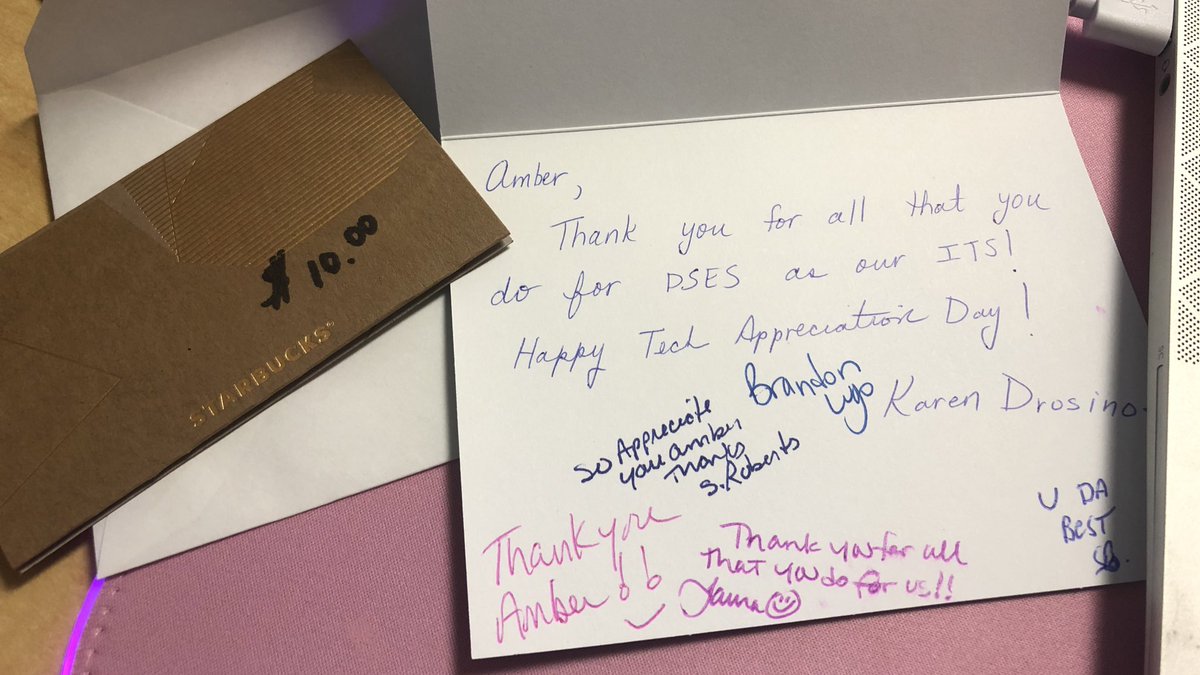 $ 10.00
STARBUCKS®
Amber,
Thank you for all that you
do for DSES as our ITS!
Happy Tech Appreciation Day!
Brandon
Ugo
Karen Drosino
SO Appreciate
you amber
Thanks
S. Roberts
Thank you
Amber!!
Thank you for all
that you do for us!!
Laura
U DA
BEST